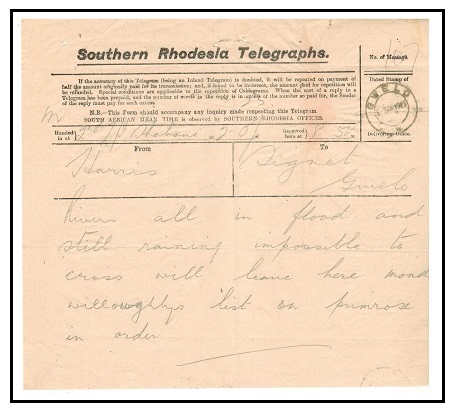 Southern Rhodesia Telegraphs.
No. of Message.
If the accuracy of this Telegram (being an Inland Telegram) is doubted, it will be repeated on payment of
half the amount originally paid for its transmission; and, if found to be incorrect, the amount paid for repetition will
be refunded. Special conditions are applicable to the repetition of Cablegrams. When the cost of a reply to a
Telegram has been prepaid, and the number of words in the reply is in excess of the number so paid for, the Sender
of the reply must pay for such excess.
Dated Stamp of
GWELO
N.B.—This Form should accompany any inquiry made respecting this Telegram
SOUTH AFRICAN MEAN TIME is observed by SOUTHERN RHODESIA OFFICER.
Delivering Office.
Handed in at
Received here at
From
To
Harris
Signet
Gwelo
Rivers all in flood and
still raining impossible to
cross will leave here mond
willoughbys list on primrose
in order